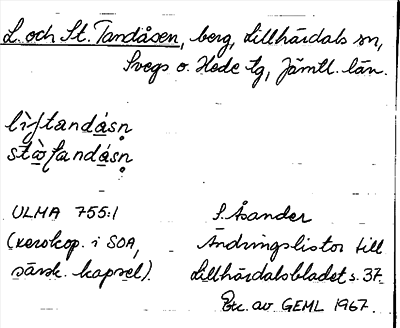 L. och St. Tandåsen, berg, Lillhärdals sn,
Svegs o. Hede tg, Jämtl. län.
lìʃtandásn̥
stò̱ʃandásn̥
ULMA 755:1
(xerokop. i SOA,
särsk. kapsel).
S. Åsander
Ändringslistor till
Lillhärdalsbladet s. 37.
Exc. av GEML 1967.